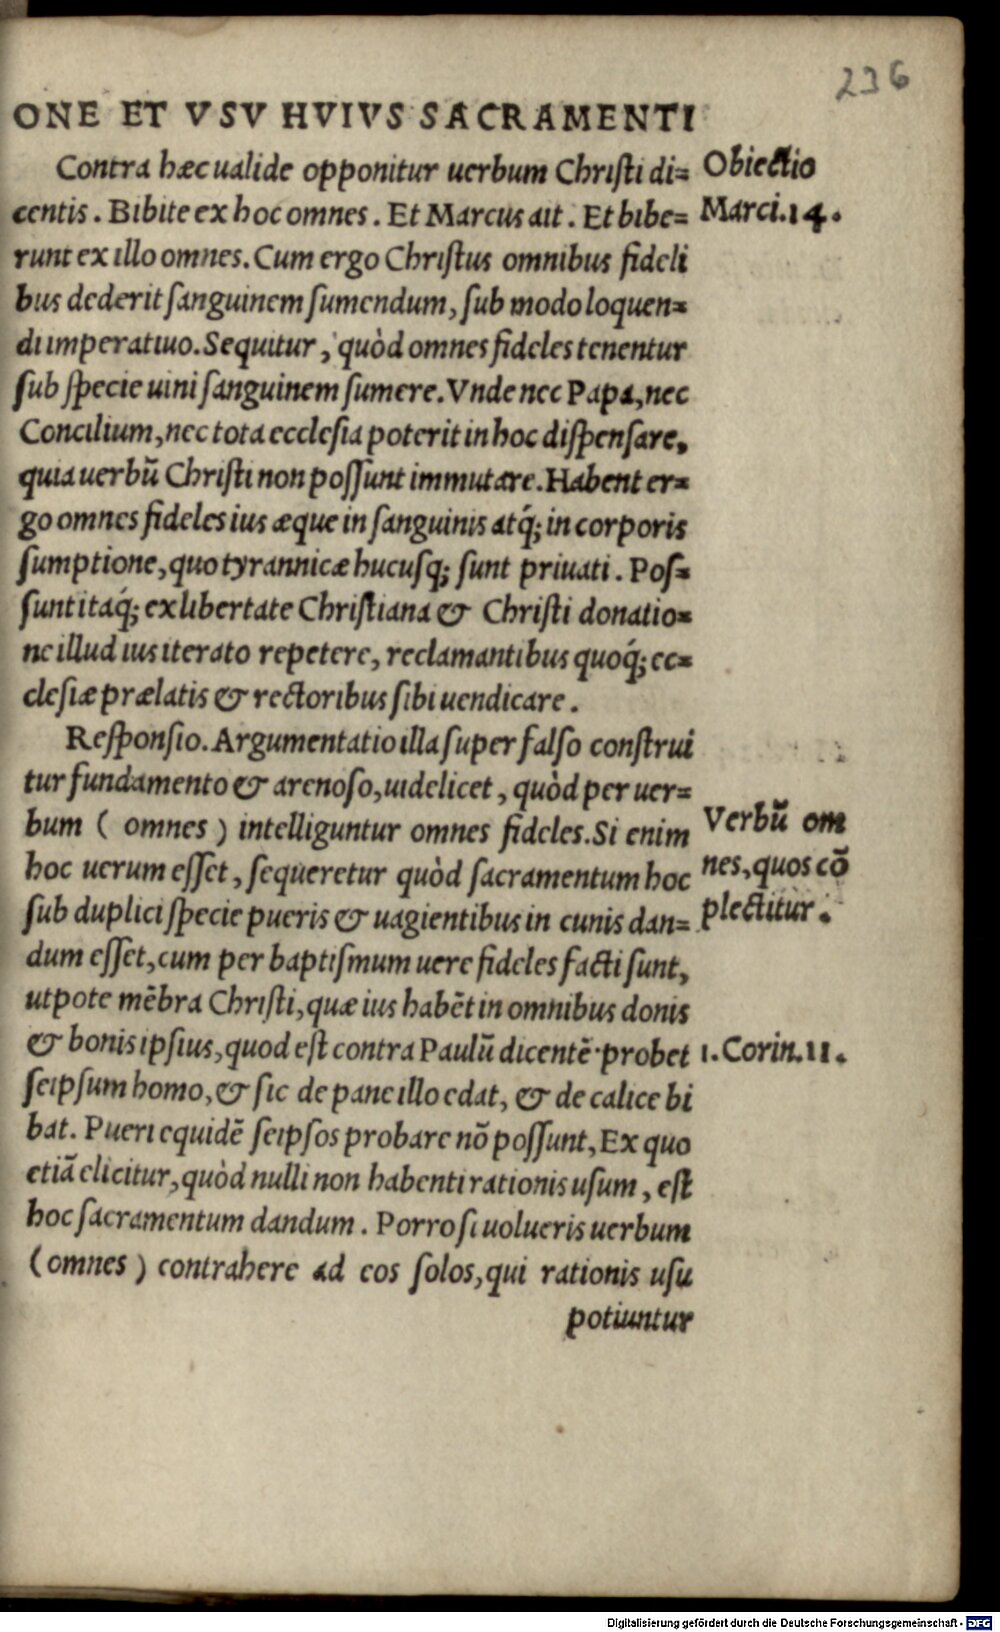 236
ONE ET VSV HVIVS SACRAMENTI
Contra hæc ualide opponitur uerbum Christi di=
Obiectio
centis. Bibite ex hoc omnes. Et Marcus ait. Et bibe=
Marci.14.
runt ex illo omnes. Cum ergo Christus omnibus fideli
bus dederit sanguinem sumendum, sub modo loquen=
di imperatiuo. Sequitur, quòd omnes fideles tenentur
sub specie uini sanguinem sumere. Vnde nec Papa, nec
Concilium, nec tota ecclesia poterit in hoc dispensare,
quia uerbũ Christi non possunt immutare. Habent er=
go omnes fideles ius æque in sanguinis atq́; in corporis
sumptione, quo tyrannicæ hucusq; sunt priuati. Pos=
sunt itaq́; ex libertate Christiana & Christi donatio=
ne illud ius iterato repetere, reclamantibus quoq́; ec=
clesiæ prælatis & rectoribus sibi uendicare.
Responsio. Argumentatio illa super falso construi
tur fundamento & arenoso, uidelicet, quòd per uer=
bum ( omnes ) intelliguntur omnes fideles. Si enim
Verbũ om
hoc uerum esset, sequeretur quòd sacramentum hoc
nes, quos cõ
sub duplici specie pueris & uagientibus in cunis dan=
plectitur.
dum esset, cum per baptismum uere fideles facti sunt,
utpote mẽbra Christi, quæ ius habẽt in omnibus donis
& bonis ipsius, quod est contra Paulũ dicentẽ·probet
1. Corin.11.
seipsum homo, & sic de pane illo edat, & de calice bi
bat. Pueri equidẽ seipsos probare nõ possunt, Ex quo
etiã elicitur, quòd nulli non habenti rationis usum, est
hoc sacramentum dandum. Porro si uolueris uerbum
(omnes ) contrahere ad eos solos, qui rationis usu
potiuntur
Digitalisierung gefördert durch die Deutsche Forschungsgemeinschaft - DFG